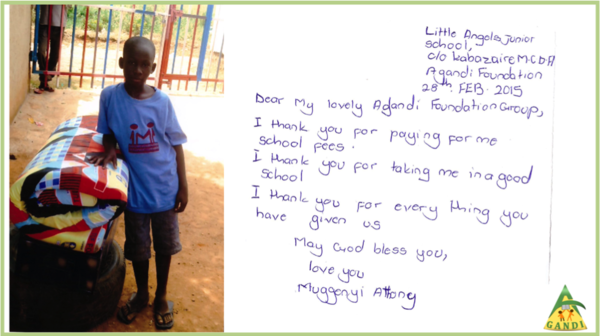 Little Angels Junior
school,
c/o Kabazaire M.C.D.A
Agandi Foundation
28th. FEB. 2015
Dear My lovely Agandi Foundation Group,
I thank you for paying for me
school fees.
I thank you for taking me in a good
school
I thank you for every thing you
have given us
May God bless you,
love you
Muggenyi Attony
AGANDI